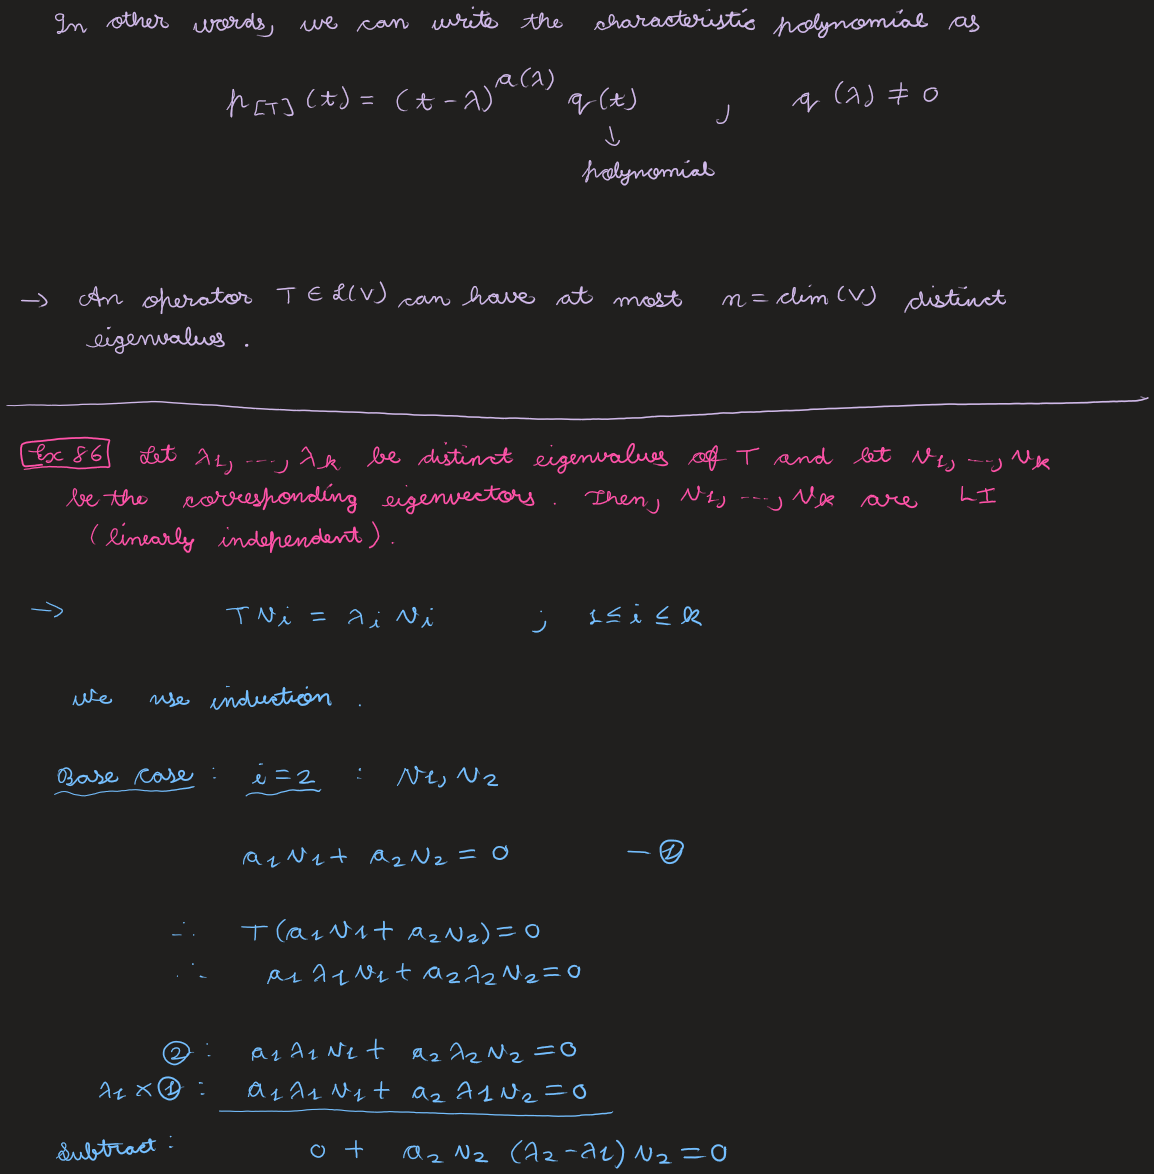 In other words, we can write the characteristic polynomial as
p[T](t) = (t - λ)^a(λ) q(t) , q(λ) ≠ 0
↓
polynomial
→ An operator T ∈ L(V) can have at most n = dim(V) distinct
eigenvalues.
Ex 86 Let λ1, ..., λk be distinct eigenvalues of T and let v1, .., vk
be the corresponding eigenvectors. Then, v1, ..., vk are LI
(linearly independent).
→ Tvi = λi vi ; 1 ≤ i ≤ k
We use induction.
Base case : i = 2 : v1, v2
a1v1 + a2v2 = 0 - ①
∴ T(a1v1 + a2v2) = 0
∴ a1λ1v1 + a2λ2v2 = 0
② : a1λ1v1 + a2λ2v2 = 0
λ1 × ① : a1λ1v1 + a2λ1v2 = 0
Subtract : 0 + a2 v2 (λ2 - λ1) v2 = 0